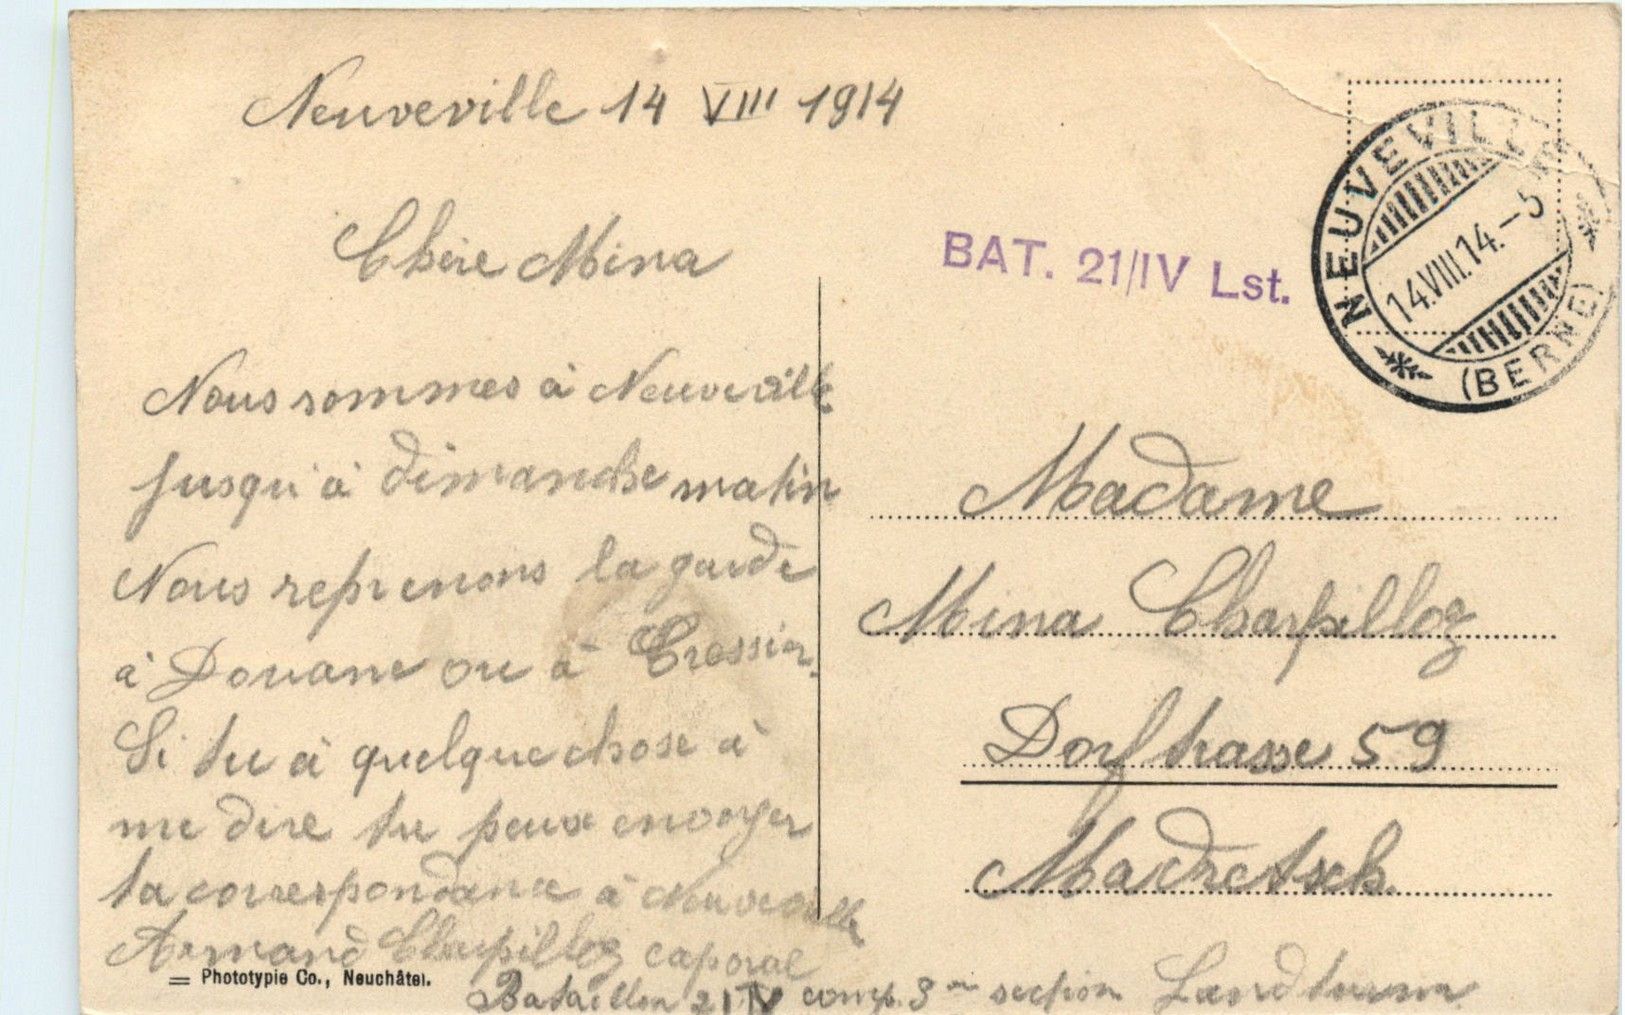 Neuveville 14 VIII 1914
Chère Mina
Nous sommes à Neuveville
jusqu'à dimanche matin
Nous reprenons la garde
à Douane ou à Cressier.
Si tu à quelque chose à
me dire tu peux envoyer
ta correspondance à Neuveville
Armand Charpilloz caporal
Bataillon 21 IV comp. 3me section Landturm
= Phototypie Co., Neuchâtel.
BAT. 21/IV Lst.
NEUVEVILLE
14.VIII.14.-5
(BERNE)
Madame
Mina Charpilloz
Dorfstrasse 59
Madretsch.